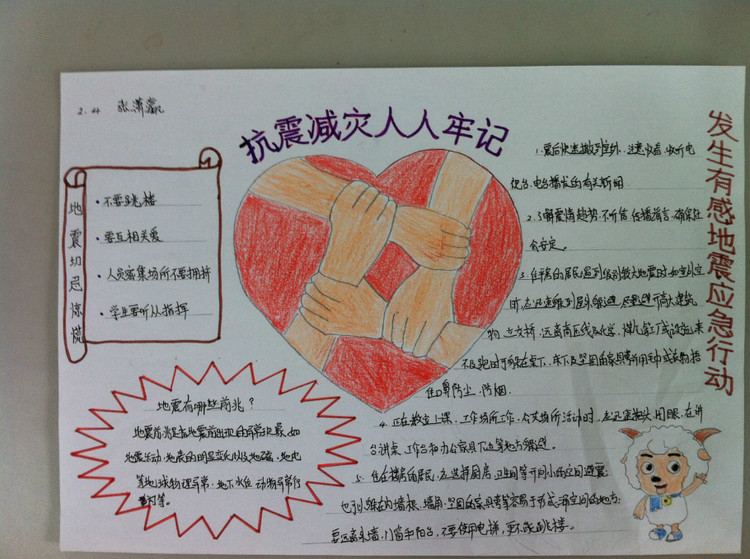 2.4 张潇瀛
抗震减灾人人牢记
地震切忌惊慌
·不要跳楼
·要互相关爱
·人员密集场所不要拥挤
·学生要听从指挥
地震有哪些前兆?
地震前兆是指地震前出现的异常现象,如
地震活动、地表的明显变化以及地磁、地电
等地球物理异常、地下水位、动物异常行
为等。
1.震后快速撤到室外,注意收看、收听电
视台、电台播发的有关新闻
2.了解震情趋势,不听信、传播谣言,确保社
会安定。
3.住平房的居民遇到级别较大地震时,如室外空
旷,应迅速跑到屋外躲避,尽量避开高大建筑
物、立交桥,远离高压线及化学、煤气等工厂或设施;来
不及跑时可躲在桌下、床下及坚固的家具旁,并用毛巾或衣物捂
住口鼻防尘、防烟.
4.正在教室上课、工作场所工作、公共场所活动时,应迅速抱头、闭眼,在讲
台、课桌、工作台和办公家具下边等地方躲避.
5.住在楼房的居民,应选择厨房、卫生间等开间小的空间避震;
也可以躲在内墙根、墙角、坚固的家具旁等容易于形成三角空间的地方;
要远离外墙、门窗和阳台,不要使用电梯,更不能跳楼。
发生有感地震应急行动